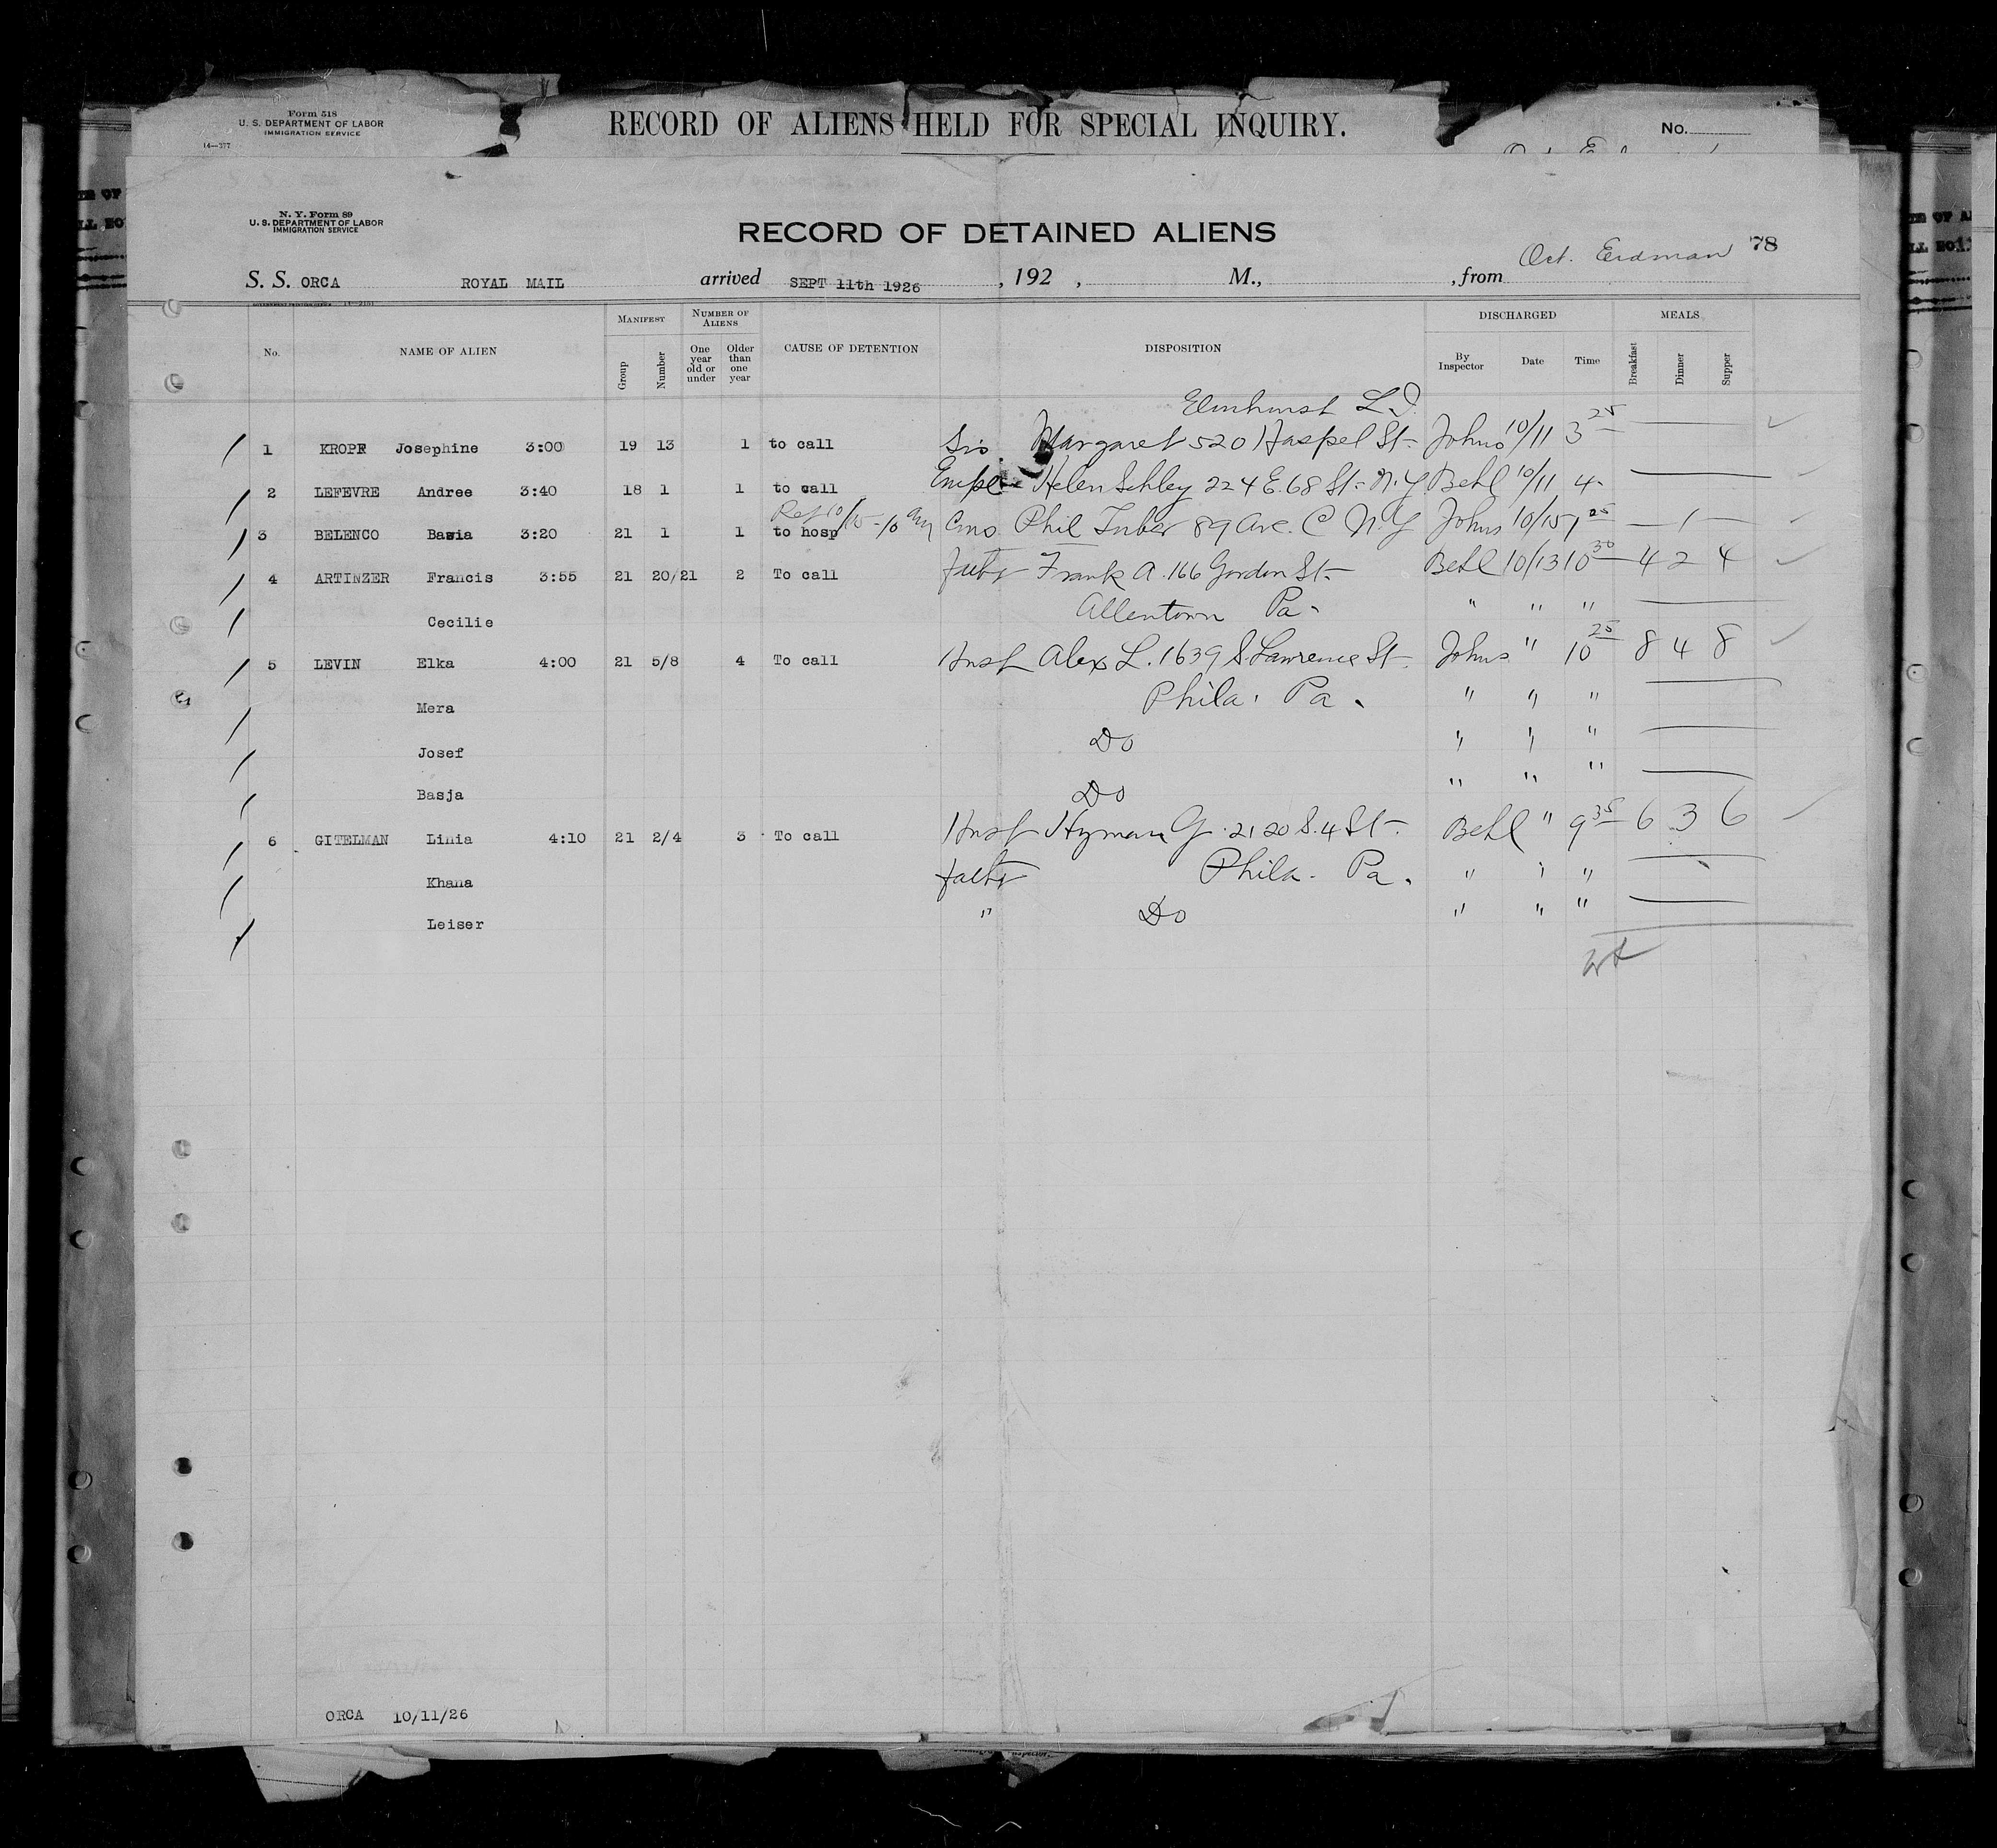 Form 518
U. S. DEPARTMENT OF LABOR
IMMIGRATION SERVICE
14—377
RECORD OF ALIENS HELD FOR SPECIAL INQUIRY.
No.
N. Y. Form 89
U. S. DEPARTMENT OF LABOR
IMMIGRATION SERVICE
RECORD OF DETAINED ALIENS
Oct. Erdman '78
S. S. ORCA ROYAL MAIL arrived SEPT 11th 1926, 192 , M., , from
MANIFEST NUMBER OF ALIENS DISCHARGED MEALS
No. NAME OF ALIEN Group Number One year old or under Older than one year CAUSE OF DETENTION DISPOSITION By Inspector Date Time Breakfast Dinner Supper
Elmhurst L.I.
1 KROPF Josephine 3:00 19 13 1 to call Sis. Margaret 520 Haspel St- Johns 10/11 3 25
2 LEFEVRE Andree 3:40 18 1 1 to call Empl- Helen Schley 224 E. 68 St- N.Y. Behl 10/11 4-
Ret 10/15 - 10 am
3 BELENCO Basia 3:20 21 1 1 to hosp Cous Phil 89 Ave. C N.Y Johns 10/15 1 25 — 1 —
4 ARTINZER Francis 3:55 21 20/21 2 To call Fathr Frank A. 166 Gordon St- Behl 10/13 10 30 4 2 4
Cecilie Allentown Pa- " " "
5 LEVIN Elka 4:00 21 5/8 4 To call Husb Alex L. 1639 S. Lawrence St. Johns " 10 25 8 4 8
Mera Phila. Pa. " " "
Josef Do " " "
Basja Do " " "
6 GITELMAN Linia 4:10 21 2/4 3 To call Husb Hyman G. 2120 S. 4 St- Behl " 9 35 6 3 6
Khana Fathr Phila. Pa. " " "
Leiser " Do " " "
ORCA 10/11/26